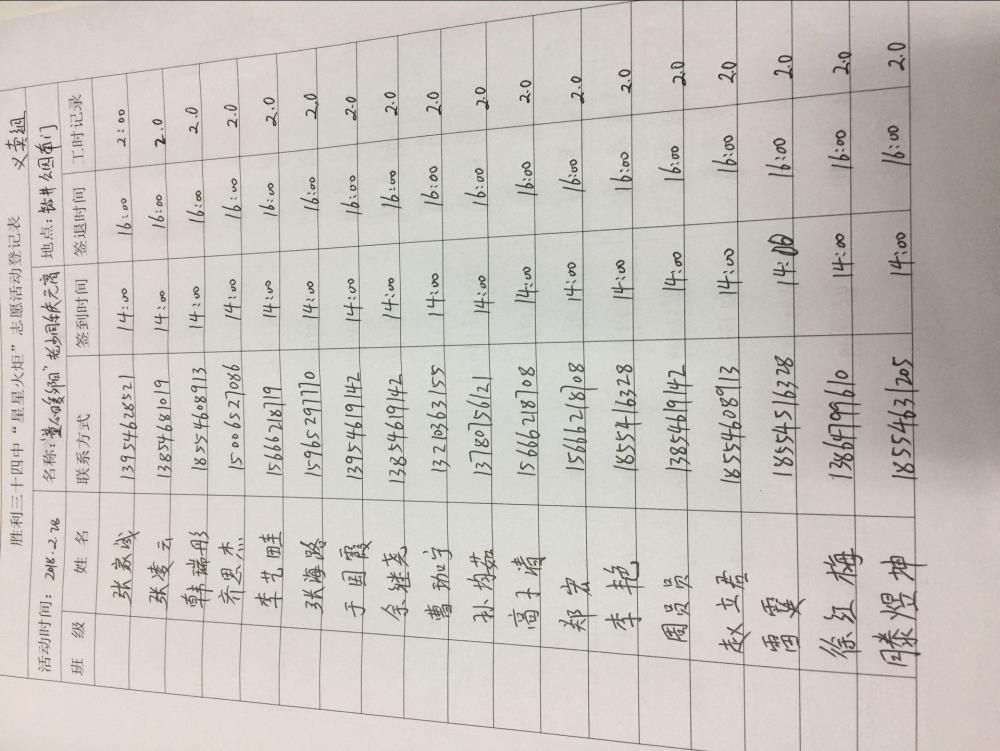 胜利三十四中“星星火炬”志愿活动登记表 义卖组
活动时间：2018.2.28 名称："董心暖 老少同乐庆元宵 地点：钻井公园南门
班 级 姓 名 联系方式 签到时间 签退时间 工时记录
张家诚 13954628521 14:00 16:00 2:00
张凌云 13854681019 14:00 16:00 2.0
韩瑞彤 18554608913 14:00 16:00 2.0
齐思杰 15006527086 14:00 16:00 2.0
李艺 15666218719 14:00 16:00 2.0
张海路 15965297770 14:00 16:00 2.0
于国霞 13954619142 14:00 16:00 2.0
余继尧 13854619142 14:00 16:00 2.0
曹 13210363155 14:00 16:00 2.0
孙均茹 13780756121 14:00 16:00 2.0
高子清 15666218708 14:00 16:00 2.0
郑宏 15666218708 14:00 16:00 2.0
李艳 1855416328 14:00 16:00 2.0
周员员 13854619142 14:00 16:00 2.0
赵立君 18554608913 14:00 16:00 2.0
雷霙 18554516328 14:00 16:00 2.0
徐红梅 13864799610 14:00 16:00 2.0
滕煜坤 18554631205 14:00 16:00 2.0